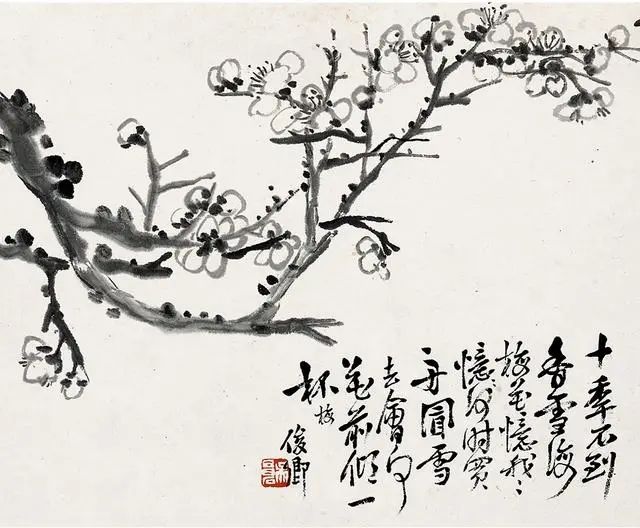 十年不到
香雪海
梅花憶我〻
憶何時買
舟冒雪
去會向
花前傾一
杯 梅
俊卿